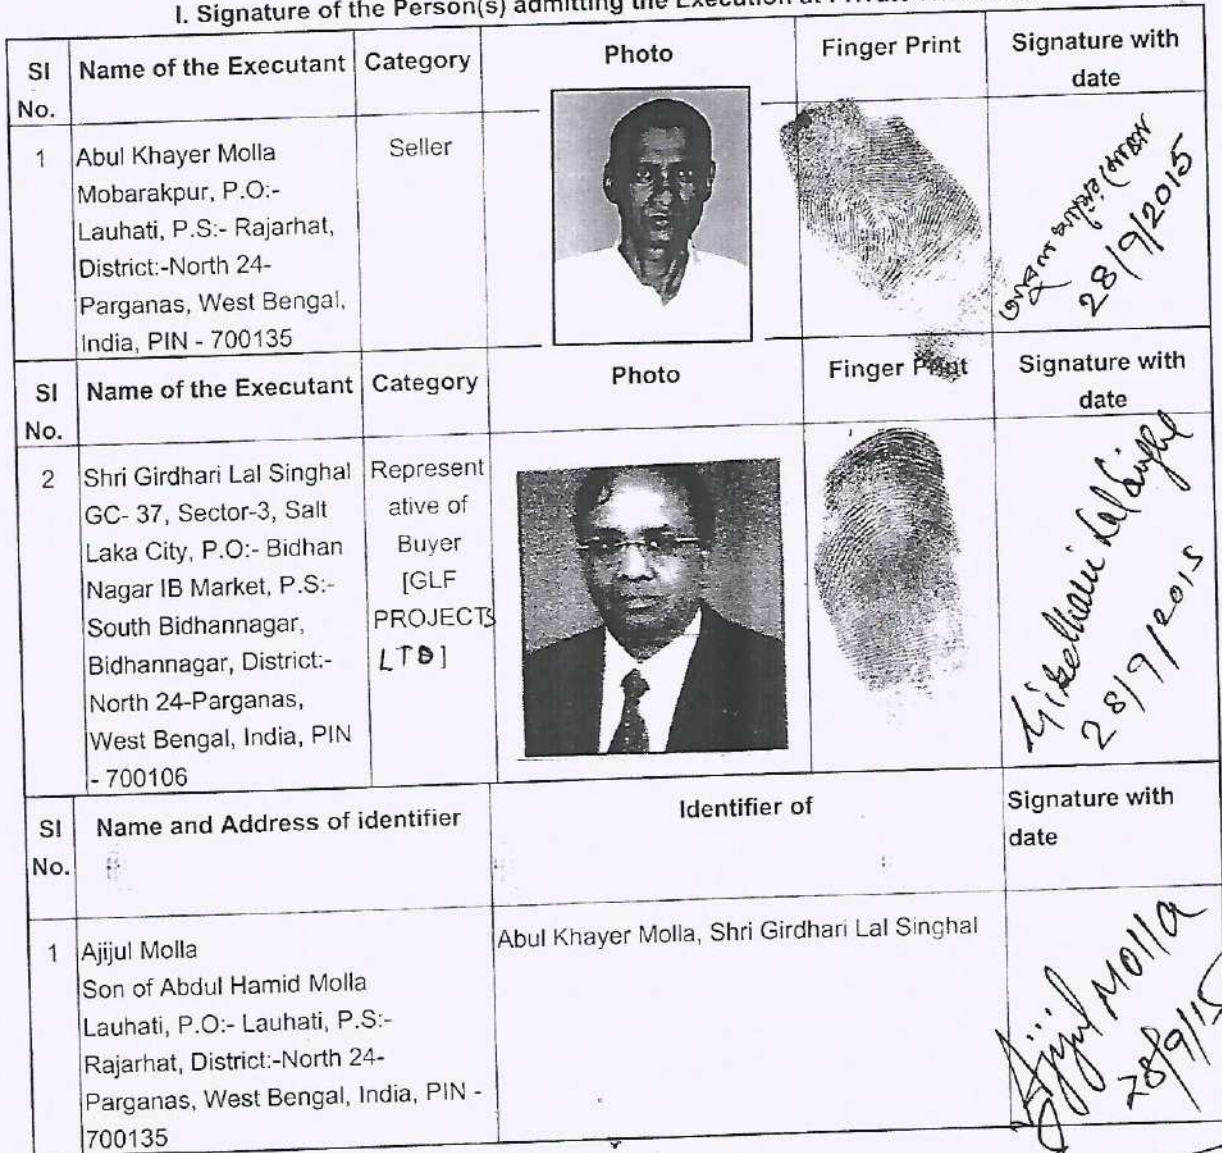 I. Signature of the Person(s) admitting the Execution at
Sl No. Name of the Executant Category Photo Finger Print Signature with date
1 Abul Khayer Molla Seller
Mobarakpur, P.O:-
Lauhati, P.S:- Rajarhat,
District:-North 24-
Parganas, West Bengal,
India, PIN - 700135
28/9/2015
Sl No. Name of the Executant Category Photo Finger Print Signature with date
2 Shri Girdhari Lal Singhal
GC- 37, Sector-3, Salt
Laka City, P.O:- Bidhan
Nagar IB Market, P.S:-
South Bidhannagar,
Bidhannagar, District:-
North 24-Parganas,
West Bengal, India, PIN
- 700106
Represent
ative of
Buyer
[GLF
PROJECTS
LTD]
Lal
28/9/2015
Sl No. Name and Address of identifier Identifier of Signature with date
1 Ajijul Molla
Son of Abdul Hamid Molla
Lauhati, P.O:- Lauhati, P.S:-
Rajarhat, District:-North 24-
Parganas, West Bengal, India, PIN -
700135
Abul Khayer Molla, Shri Girdhari Lal Singhal
Ajijul Molla
28/9/15